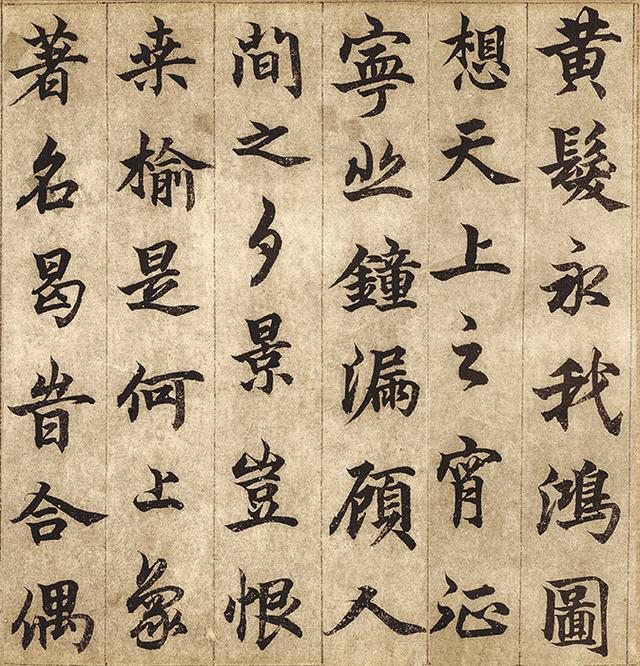 黄髮永我鴻圖
想天上之宵征
寧鐘漏顧人
間之夕景豈恨
桒榆是何上象
著名曷旹合偶